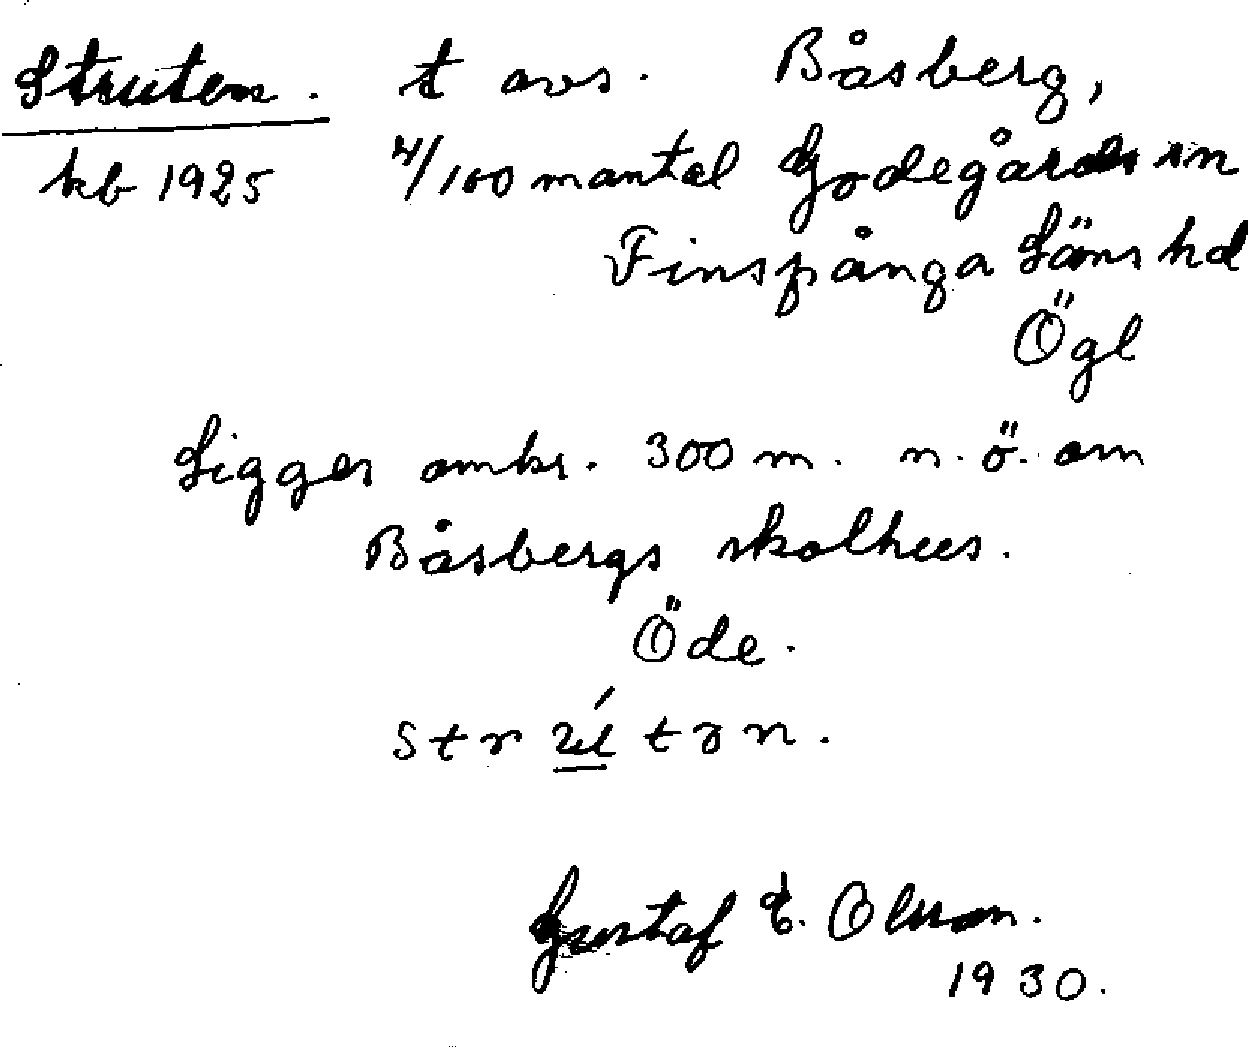 Struten. t avs. Båsberg,
kb 1925 4/100 mantal Godegårds sn
Finspånga Läns hd
Ögl
Ligger omkr. 300 m. n. ö. om
Båsbergs skolhus.
Öde.
strú́tən.
Gustaf E. Olsson.
1930.